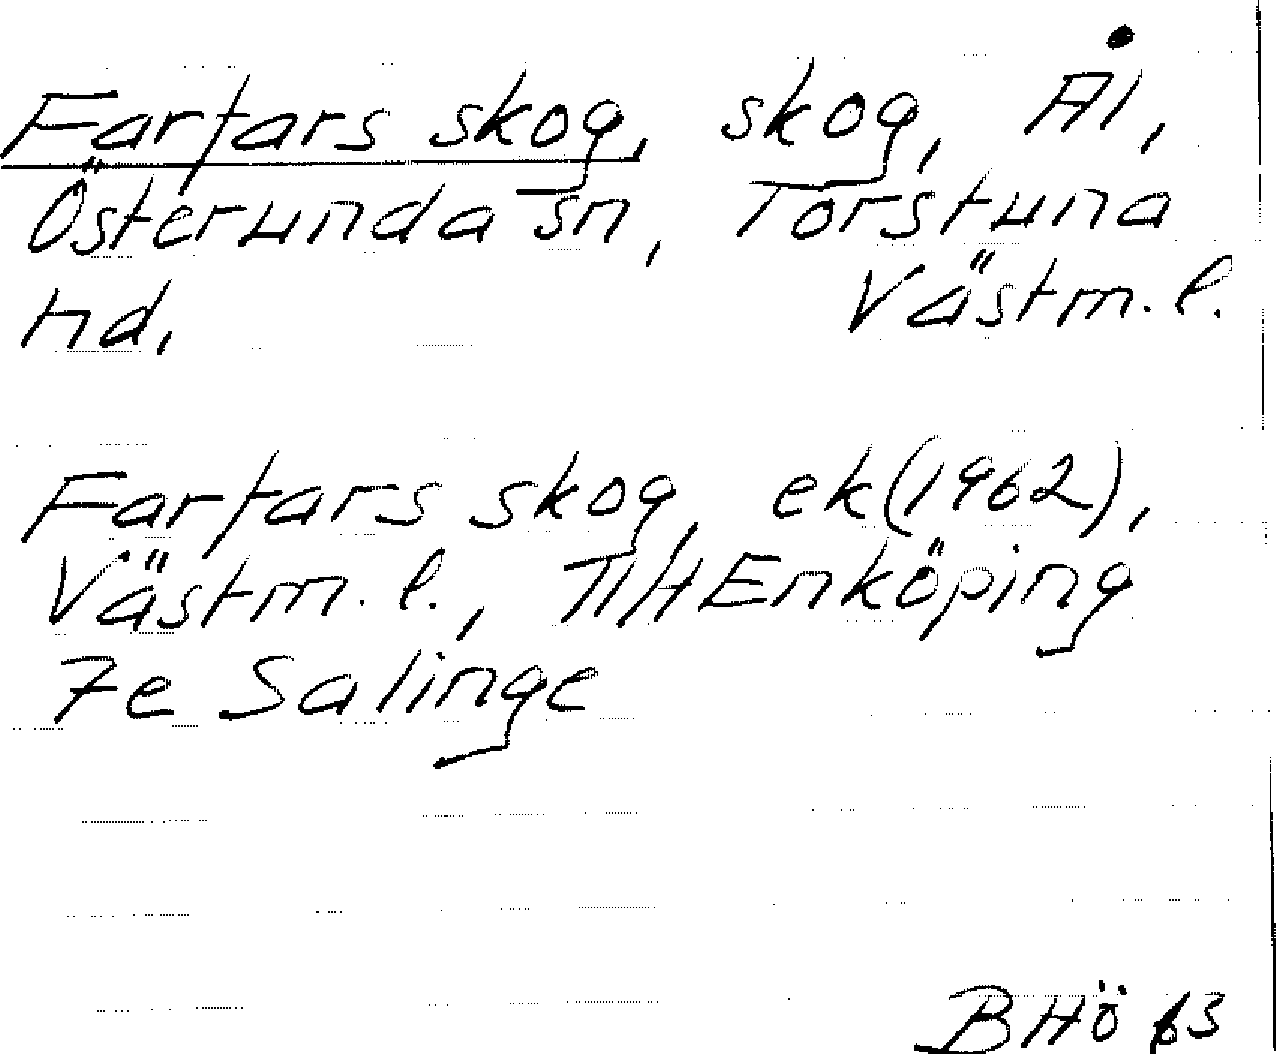 Farfars skog, skog, Ål,
Österunda sn, Torstuna
hd, Västm. l.
Farfars skog, ek (1962),
Västm. l., 11H Enköping
7e Salinge
BHö 63